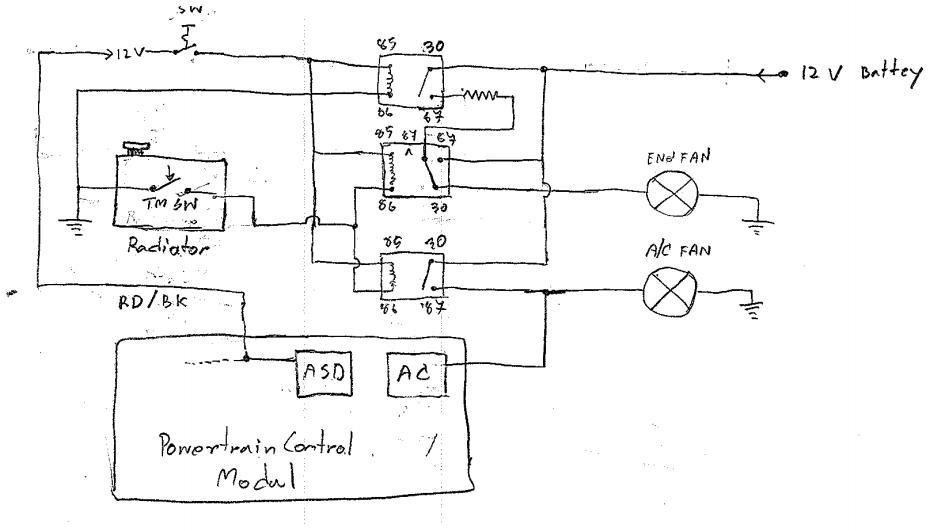 SW
12V
85 30
12 V Battey
86 87
85 87 87
A
ENd FAN
TM SW
86 30
Radiator
85 30
A/C FAN
RD/BK
86 87
ASD
AC
Powertrain Control
Modul